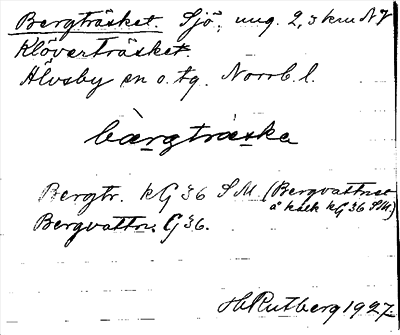 Bergträsket. Sjö, ung. 2,5 km NV
Klöverträsket.
Älvsby sn o. tg. Norrb. l.
bàrgträska
Bergtr. kG 36 SM (Bergvattnet
å kalk kG 36 SM.)
Bergvattn. G 36.
H Rutberg 1927